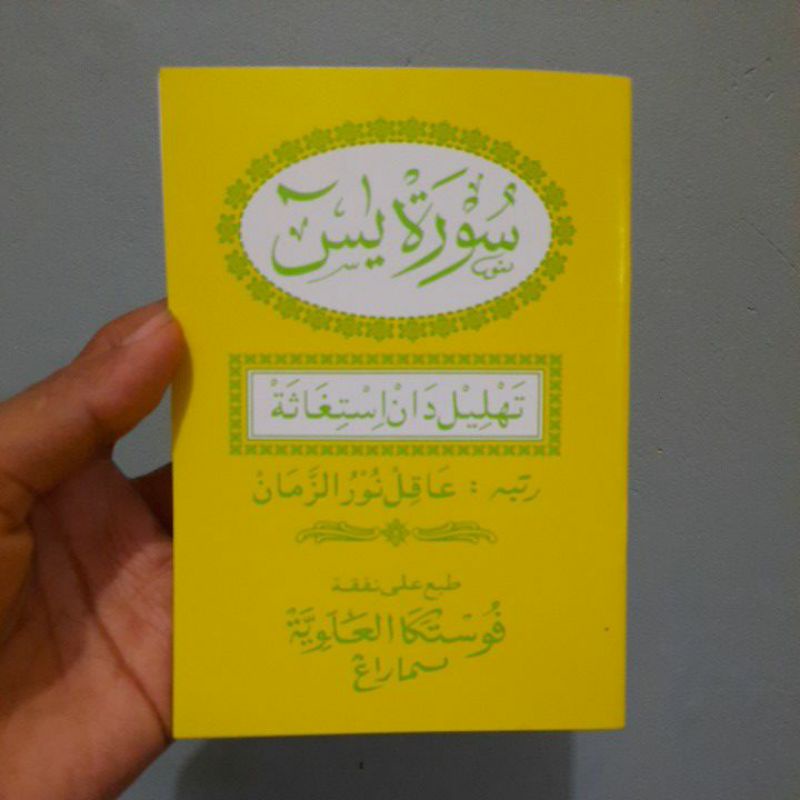 سُوْرَةْ يٰسٓ
تَهْلِيْل دَانْ اِسْتِغَاثَةْ
رتبه : عَاقِلْ نُوْرُ الزَّمَانْ
طبع على نفقة
فُوْسْتَكَا الْعَلَوِيَّةْ
سماراڠ